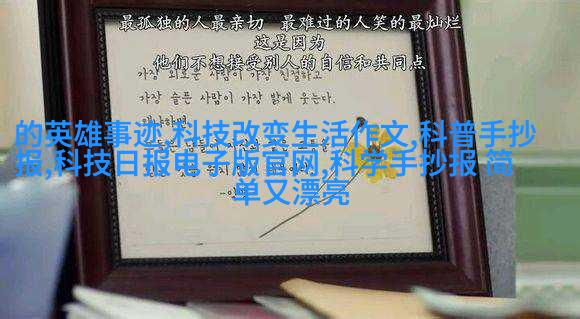 最孤独的人最亲切 最难过的人笑的最灿烂
这是因为
他们不想接受别人的自信和共同点
가장 외로운 사람이 가장 친절하고
가장 슬픈 사람이 가장 밝게 웃는다.
왜냐하면
的英雄事迹,科技改变生活作文,科普手抄
报,科技日报电子版官网,科学手抄报 简
单又漂亮